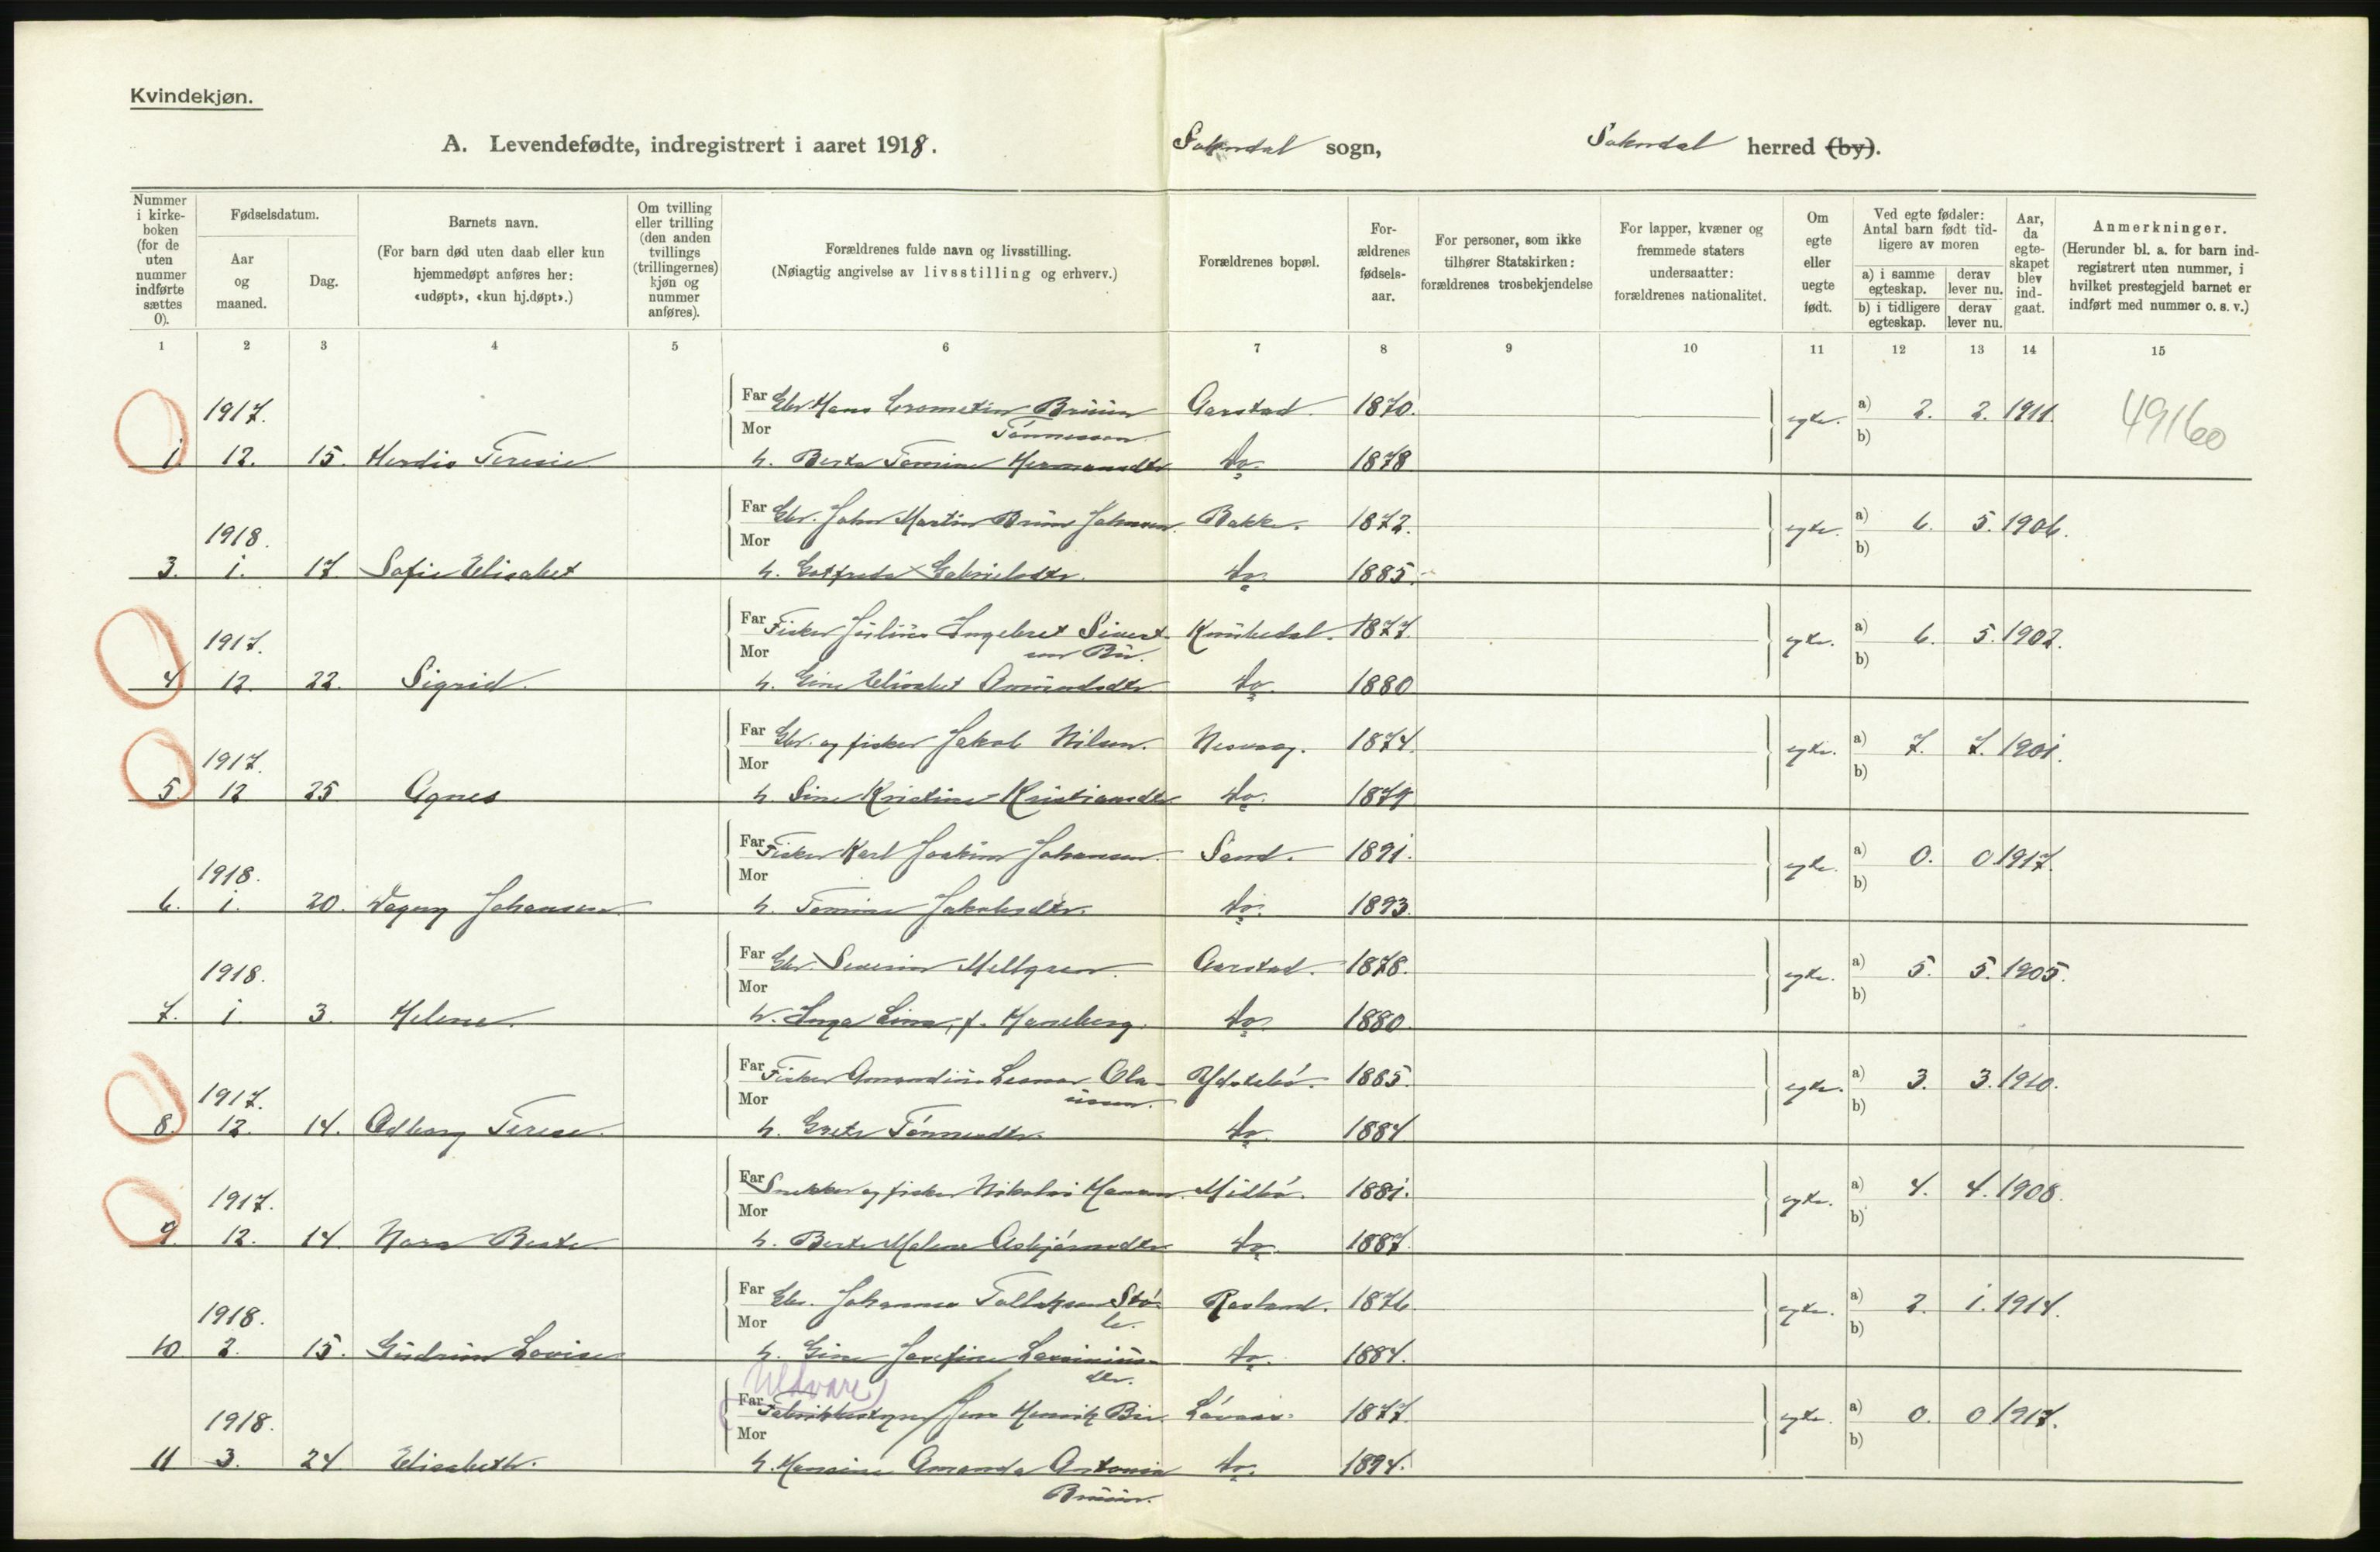 Kvindekjøn.
A. Levendefødte, indregistrert i aaret 1918. Sokndal sogn, Sokndal herred (by).
Nummer i kirke-boken (for de uten nummer indførte sættes 0).
Fødselsdatum.
Aar og maaned.
Dag.
Barnets navn.
(For barn død uten daab eller kun hjemmedøpt anføres her: «udøpt», «kun hj.døpt».)
Om tvilling eller trilling (den anden tvillings (trillingernes) kjøn og nummer anføres).
Forældrenes fulde navn og livsstilling.
(Nøiagtig angivelse av livsstilling og erhverv.)
Forældrenes bopæl.
For-ældrenes fødsels-aar.
For personer, som ikke tilhører Statskirken: forældrenes trosbekjendelse
For lapper, kvæner og fremmede staters undersaatter: forældrenes nationalitet.
Om egte eller uegte født.
Ved egte fødsler: Antal barn født tid-ligere av moren
a) i samme egteskap. derav lever nu.
b) i tidligere egteskap. derav lever nu.
Aar, da egte-skapet blev ind-gaat.
Anmerkninger.
(Herunder bl. a. for barn ind-registrert uten nummer, i hvilket prestegjeld barnet er indført med nummer o. s. v.)
1 2 3 4 5 6 7 8 9 10 11 12 13 14 15
1917. Far Gbr Hans Crometin Bruun Aarstad. 1870. egte. a) 2. 2. 1911. 49160
Mor Tönnessen b)
1. 12. 15. Herdis Teresie h. Berte Tomine Hermansdtr do. 1878
1918. Far Gbr. Johan Martin Bruun Johnsen. Bakke. 1872. egte. a) 6. 5. 1906.
Mor b)
3. 1. 17. Sofie Elisabet h. Gotfreda Gabrielsdtr. do. 1885.
1917. Far Fisker Julius Ingebret Sivert- Knubedal. 1877. egte. a) 6. 5. 1902.
Mor sen Bu. b)
4 12. 22. Sigrid. h. Gine Elisabet Amundsdtr do. 1880
1917. Far Gbr. og fisker Jakob Nilsen. Nesvaag. 1874. egte. a) 7. 7. 1901.
Mor b)
5. 12 25 Agnes h. Sine Kristine Kristiansdtr do. 1879
1918. Far Fisker Karl Joakim Johansen. Sand. 1891. egte. a) 0. 0 1917.
Mor b)
6. 1. 20. Dagny Johansen h. Tomine Jakobsdtr. do. 1893.
1918. Far Gbr. Severin Mellgren. Aarstad. 1878. egte. a) 5. 5. 1905.
Mor b)
7. 1. 3. Helene. h. Inga Lina, f. Haneberg. do. 1880.
1917. Far Fisker Amandius Leonar Ola- Ydstebö. 1885. egte. a) 3. 3. 1910.
Mor ussen. b)
8. 12. 14. Odborg Terese. h. Grete Tönnesdtr. do. 1884
1917. Far Snekker og fisker Nikolai Hansen. Midbö. 1881. egte. a) 4. 4. 1908.
Mor b)
9. 12. 14. Nora Berte h. Berte Malene Asbjörnsdtr do. 1887.
1918. Far Gbr. Johannes Tollaksen Stö- Rosland. 1876. egte. a) 2. 1. 1914.
Mor le. b)
10 2. 15. Gudrun Lovise h. Gine Josefine Laurinius- do. 1884.
dtr.
Uldvare
1918. Far Fabrikbestyrer Jens Henrik Bu Lövaas. 1877. egte. a) 0. 0 1917.
Mor b)
11 3. 24 Elisabeth. h. Hansine Amanda Antonia do. 1894.
Bruun.